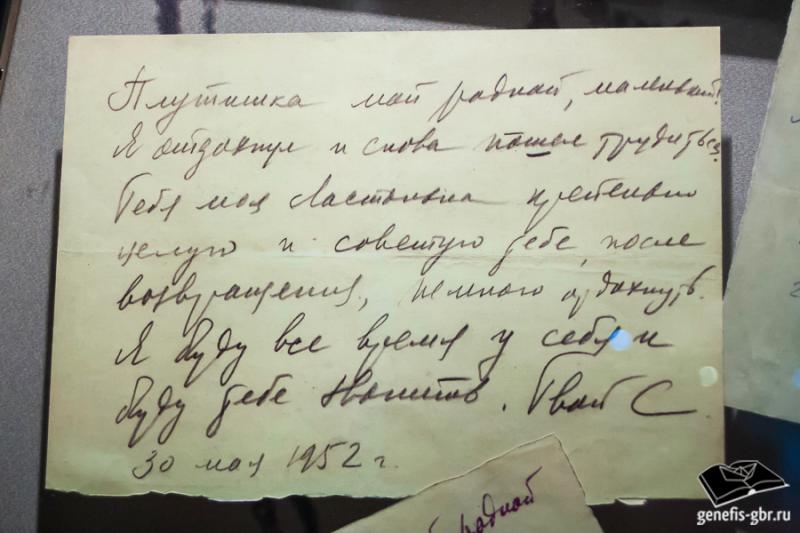 Плутишка мой родной, маленький!
Я отдохнул и снова пошел трудиться.
Тебя моя Ласточка крепенько
целую и советую тебе, после
возвращения, немного отдохнуть.
Я буду все время у себя и
буду тебе звонить. Твой С.
30 мая 1952 г.
родной
genefis-gbr.ru